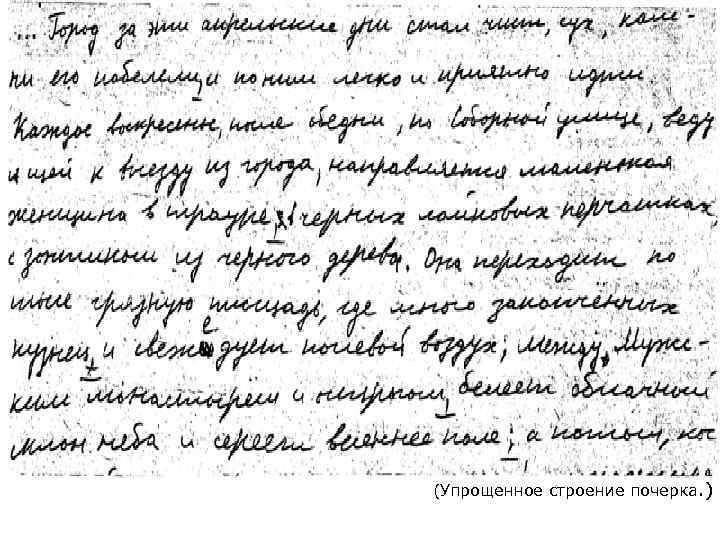 ... Город за эти апрельские дни стал чист, сух, каме-
ни его побелели, и по ним легко и приятно идти.
Каждое воскресенье, после обедни, по Соборной улице, веду
щей к выезду из города, направляется маленькая
женщина в трауре, в черных лайковых перчатках,
с зонтиком из черного дерева. Она переходит по
шоссе грязную площадь, где много закопчённых
кузнец, и свежо дует полевой воздух; между Муж-
ским монастырем и острогом, белеет облачный
склон неба и сереет весеннее поле; а потом, ког
(Упрощенное строение почерка.)